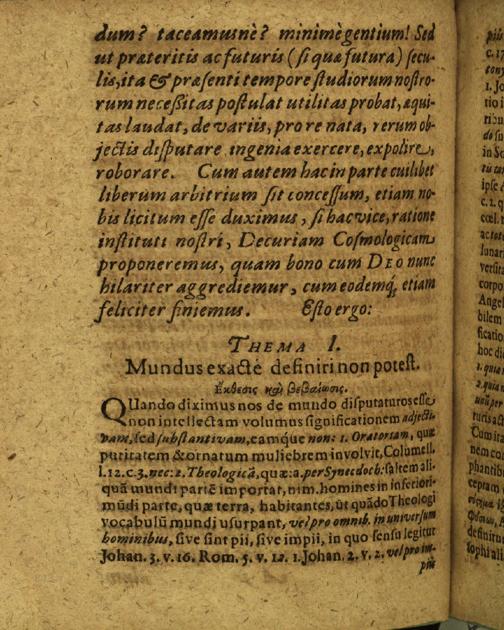 dum? taceamusnè? minimègentium! Sed
ut præteritis ac futuris (si quæ futura) secu-
lis, ita & præsenti tempore studiorum nostro-
rum necessitas postulat utilitas probat, æqui-
tas laudat, de variis, pro re nata, rerum ob-
jectis disputare ingenia exercere, expolire,
roborare. Cum autem hac in parte cuilibet
liberum arbitrium sit concessum, etiam no-
bis licitum esse duximus, si hac vice, ratione
instituti nostri, Decuriam Cosmologicam
proponeremus, quam bono cum DEO nunc
hilariter aggrediemur, cum eodemq́, etiam
feliciter finiemus. Esto ergo:
THEMA I.
Mundus exactè definiri non potest.
Ἔκθεσις καὶ βεβαίωσις.
QUando diximus nos de mundo disputaturos esse
non intellectam volumus significationem adjecti-
vam, sed substantivam, eamq́ue non: 1. Oratoriam, quæ
puritatem & ornatum muliebrem involvit, Columell.
l. 12. c. 3. nec: 2. Theologicâ, quæ: a. per Synecdoch: saltem ali-
quâ mundi partē importat, nim. homines in inferiori
mūdi parte, quæ terra, habitantes, ut quādo Theologi
vocabulū mundi usurpant, vel pro omnib. in universum
hominibus, sive sint pii, sive impii, in quo sensu legitur
Johan. 3. v. 16. Rom. 5. v. 12. 1. Johan. 2. v. 2. vel pro im-
piis